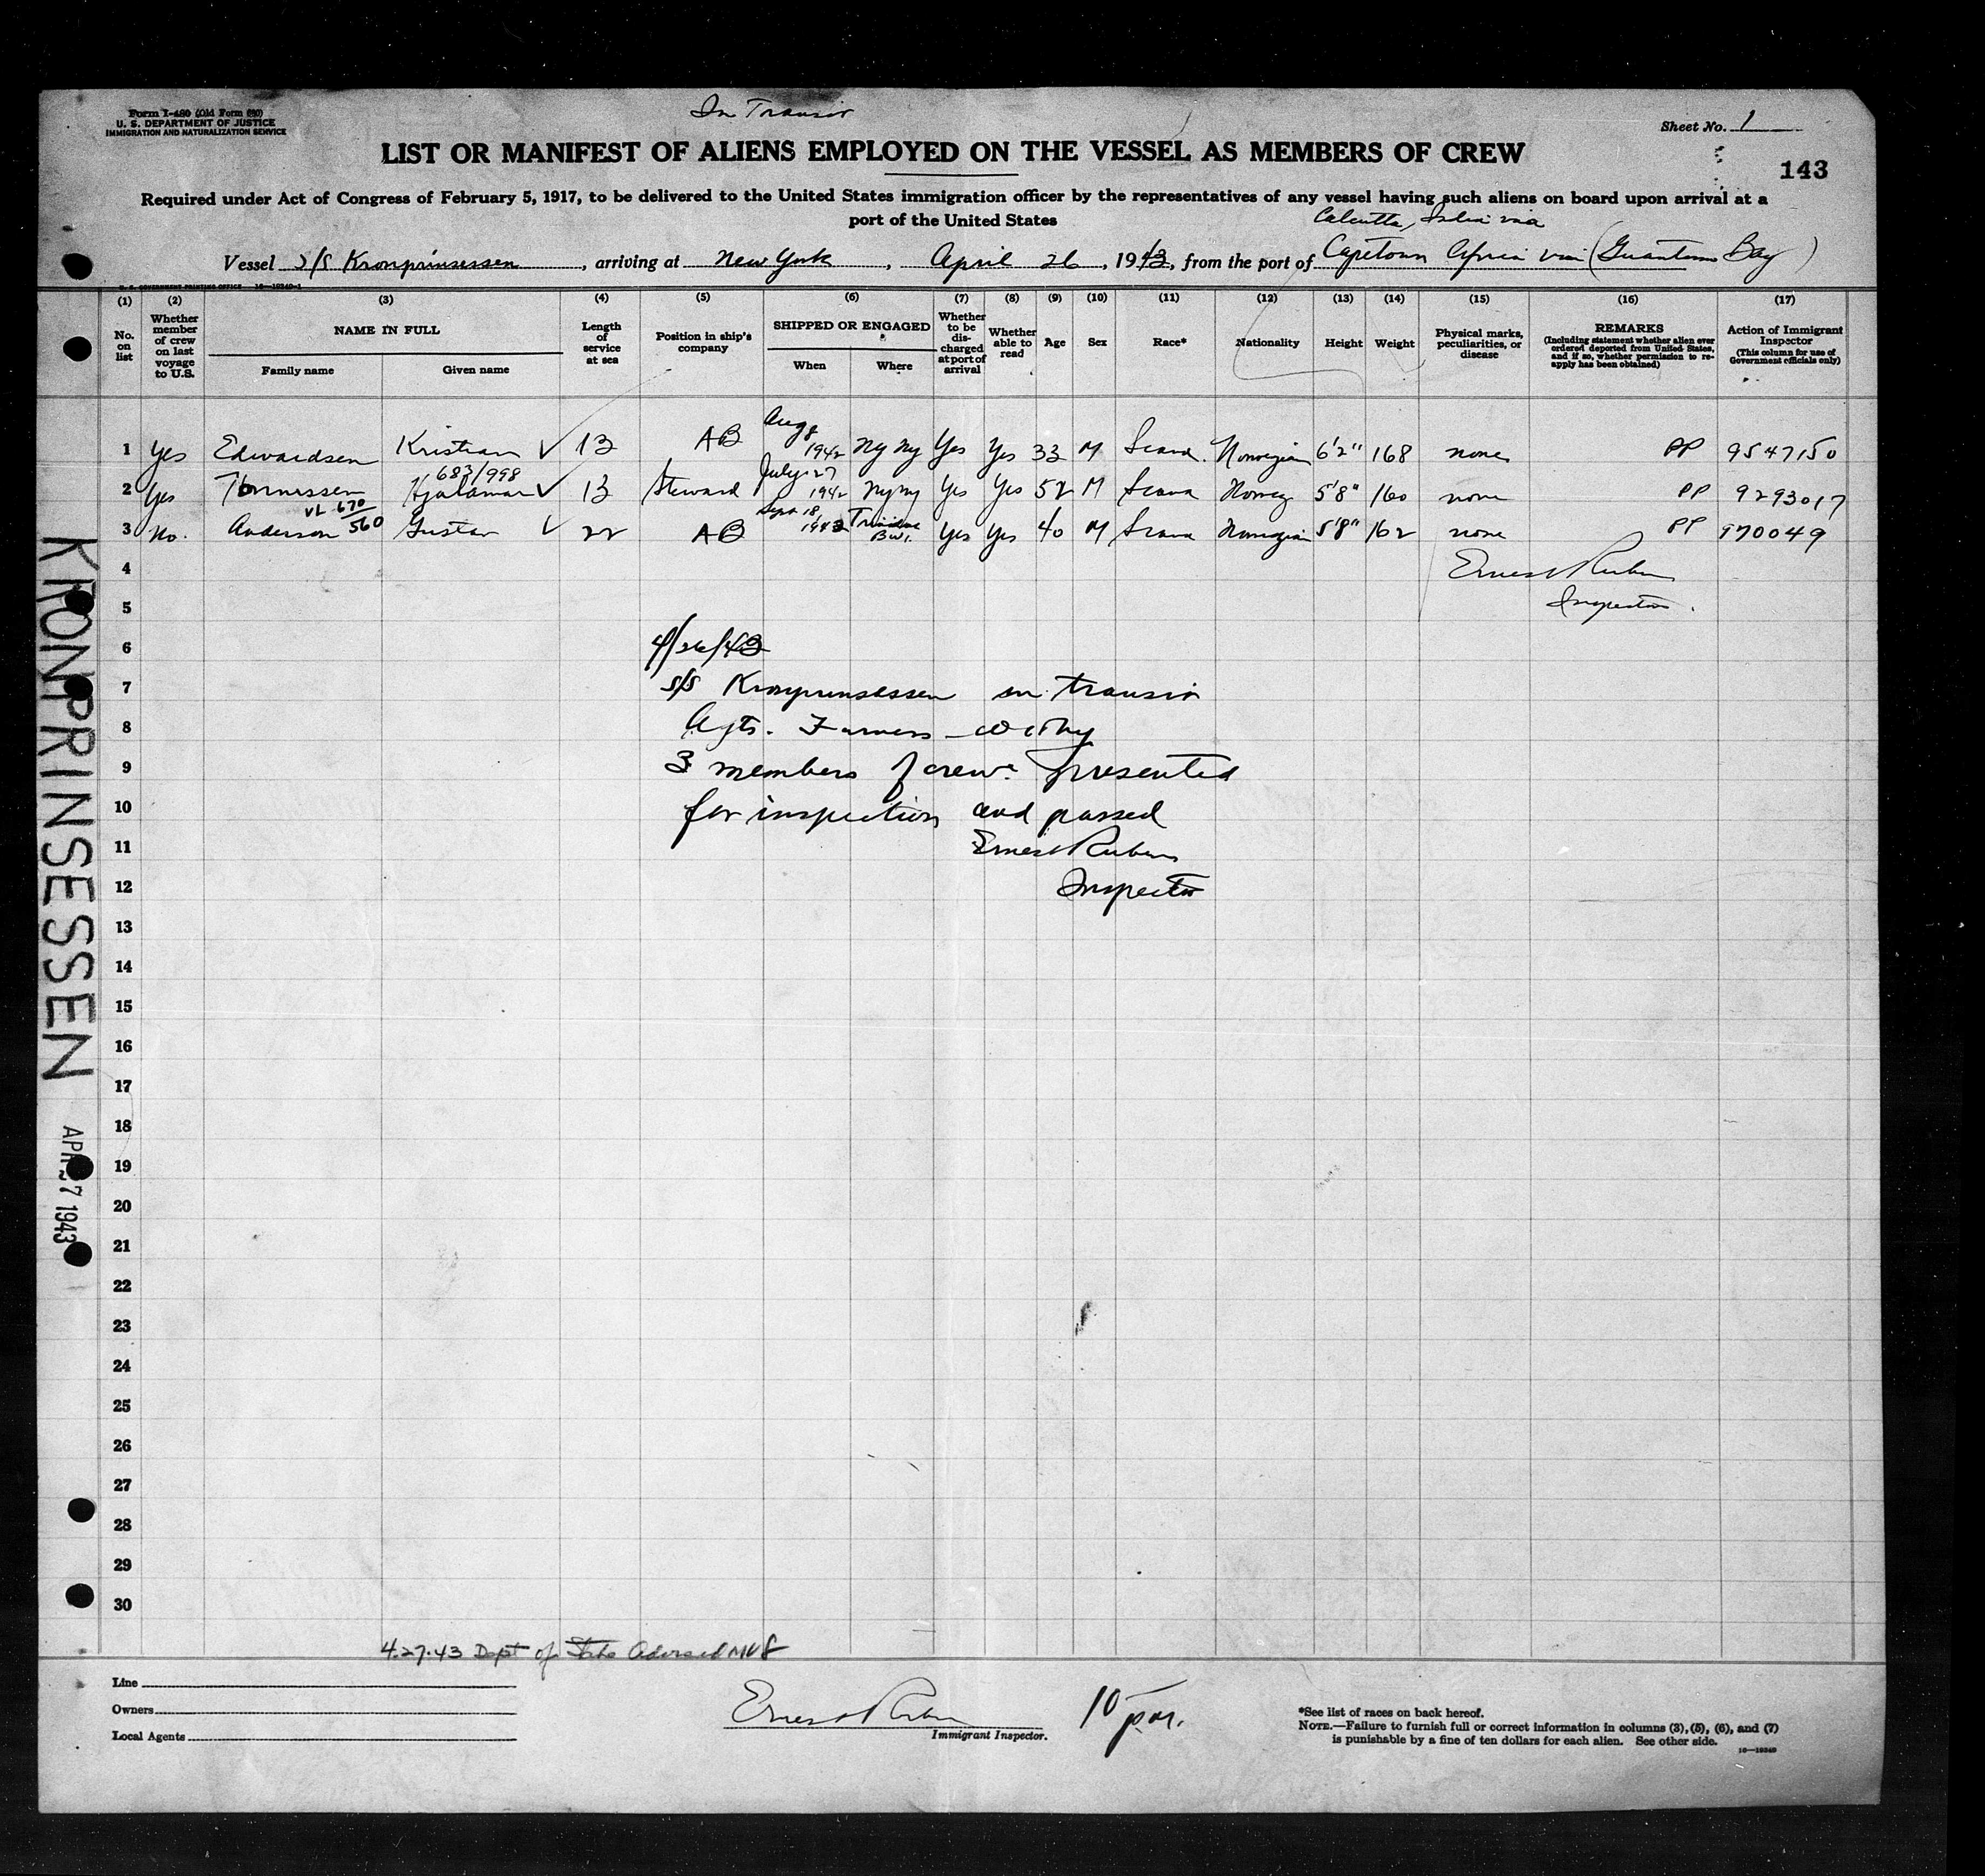 Form I-480 (Old Form 680)
U. S. DEPARTMENT OF JUSTICE
IMMIGRATION AND NATURALIZATION SERVICE
In Transit
Sheet No. 1
LIST OR MANIFEST OF ALIENS EMPLOYED ON THE VESSEL AS MEMBERS OF CREW
143
Required under Act of Congress of February 5, 1917, to be delivered to the United States immigration officer by the representatives of any vessel having such aliens on board upon arrival at a
port of the United States
Calcutta, India via
Vessel S/S Kronprinsessen, arriving at New York, April 26, 1943, from the port of Capetown Africa via (Guantanamo Bay)
U. S. GOVERNMENT PRINTING OFFICE 16—19340-1
(1) (2) (3) (4) (5) (6) (7) (8) (9) (10) (11) (12) (13) (14) (15) (16) (17)
No. on list
Whether member of crew on last voyage to U.S.
NAME IN FULL
Family name Given name
Length of service at sea
Position in ship's company
SHIPPED OR ENGAGED
When Where
Whether to be discharged at port of arrival
Whether able to read
Age
Sex
Race*
Nationality
Height
Weight
Physical marks, peculiarities, or disease
REMARKS
(Including statement whether alien ever ordered deported from United States, and if so, whether permission to reapply has been obtained)
Action of Immigrant Inspector
(This column for use of Government officials only)
1 Yes Edwardsen Kristian ✓ 13 AB Aug 8 1942 NY NY Yes Yes 33 M Scand. Norwegian 6'2" 168 none PP 9547150
683/998
2 Yes Tonnessen Hjalamar ✓ 13 Steward July 27 1942 NY NY Yes Yes 52 M Scand Norweg 5'8" 160 none PP 9293017
VL 670/560
3 No. Anderson Gustav ✓ 22 AB Sept 18, 1942 Trinidad B.W.I. Yes Yes 40 M Scand Norwegian 5'8" 162 none PP 970049
4 Ernest Rubin
5 Inspector.
6 4/26/43
7 S/S Kronprinsessen in transit
8 Agts. Furness Withy
9 3 members of crew presented
10 for inspection and passed
11 Ernest Rubin
12 Inspector
13
14
15
16
17
18
19
20
21
22
23
24
25
26
27
28
29
30
KRONPRINSESSEN
APR 27 1943
4.27.43 Dept of State Advised
Line
Owners
Local Agents
Ernest Rubin
Immigrant Inspector.
10 pm.
*See list of races on back hereof.
NOTE.—Failure to furnish full or correct information in columns (3), (5), (6), and (7)
is punishable by a fine of ten dollars for each alien. See other side.
16—19340